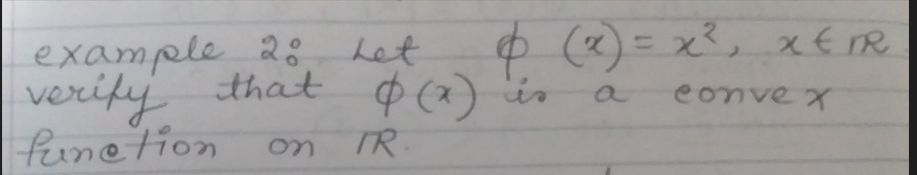 example 2: Let ϕ (x) = x², x ∈ IR
verify that ϕ(x) is a convex
function on IR.